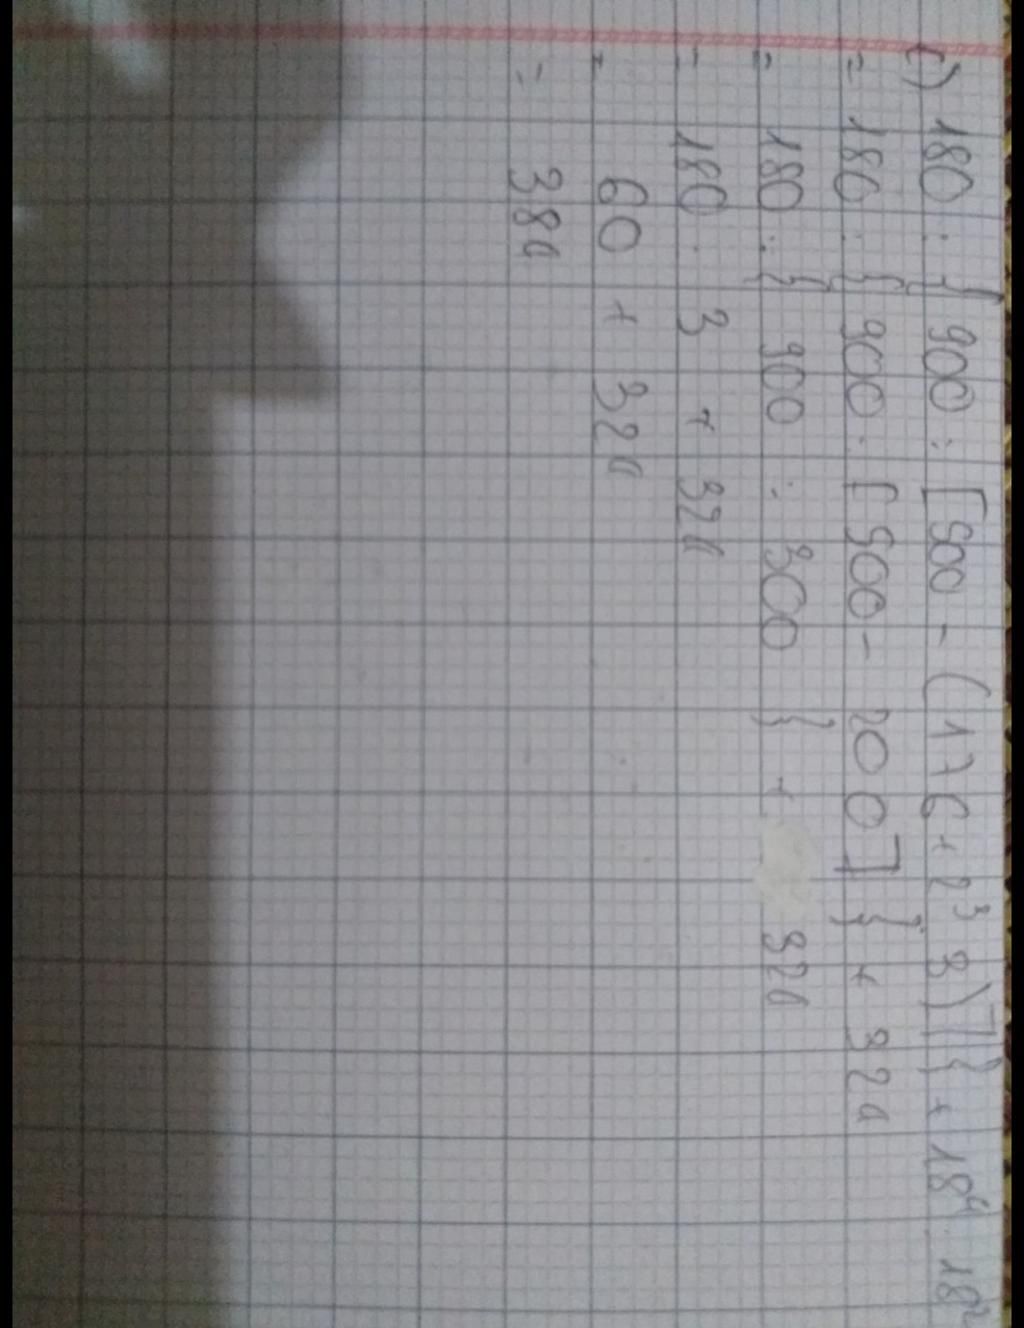 c) 180 : { 900 : [ 500 - ( 176 + 2³ 3 ) ] } + 18⁴ : 18²
= 180 : { 900 : [ 500 - 200 ] } + 324
= 180 : { 900 : 300 } + 324
= 180 : 3 + 324
= 60 + 324
= 384